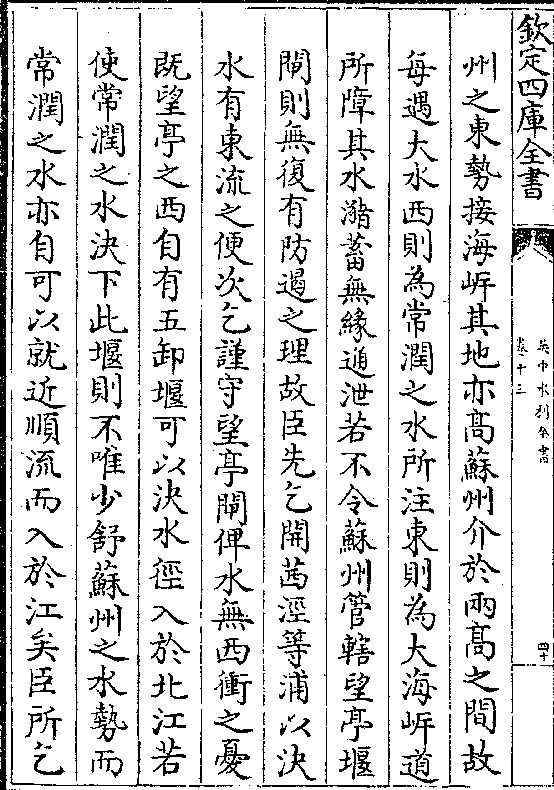 欽定四庫全書
吳中水利全書
卷十三
四十
州之東勢接海岸其地亦高蘇州介於兩高之間故
每遇大水西則為常潤之水所注東則為大海岸道
所障其水瀦蓄無緣通泄若不令蘇州管轄望亭堰
閘則無復有防遏之理故臣先乞開茜涇等浦以決
水有東流之便次乞謹守望亭閘俾水無西衝之憂
既望亭之西自有五卸堰可以決水徑入於北江若
使常潤之水決下此堰則不唯少舒蘇州之水勢而
常潤之水亦自可以就近順流而入於江矣臣所乞